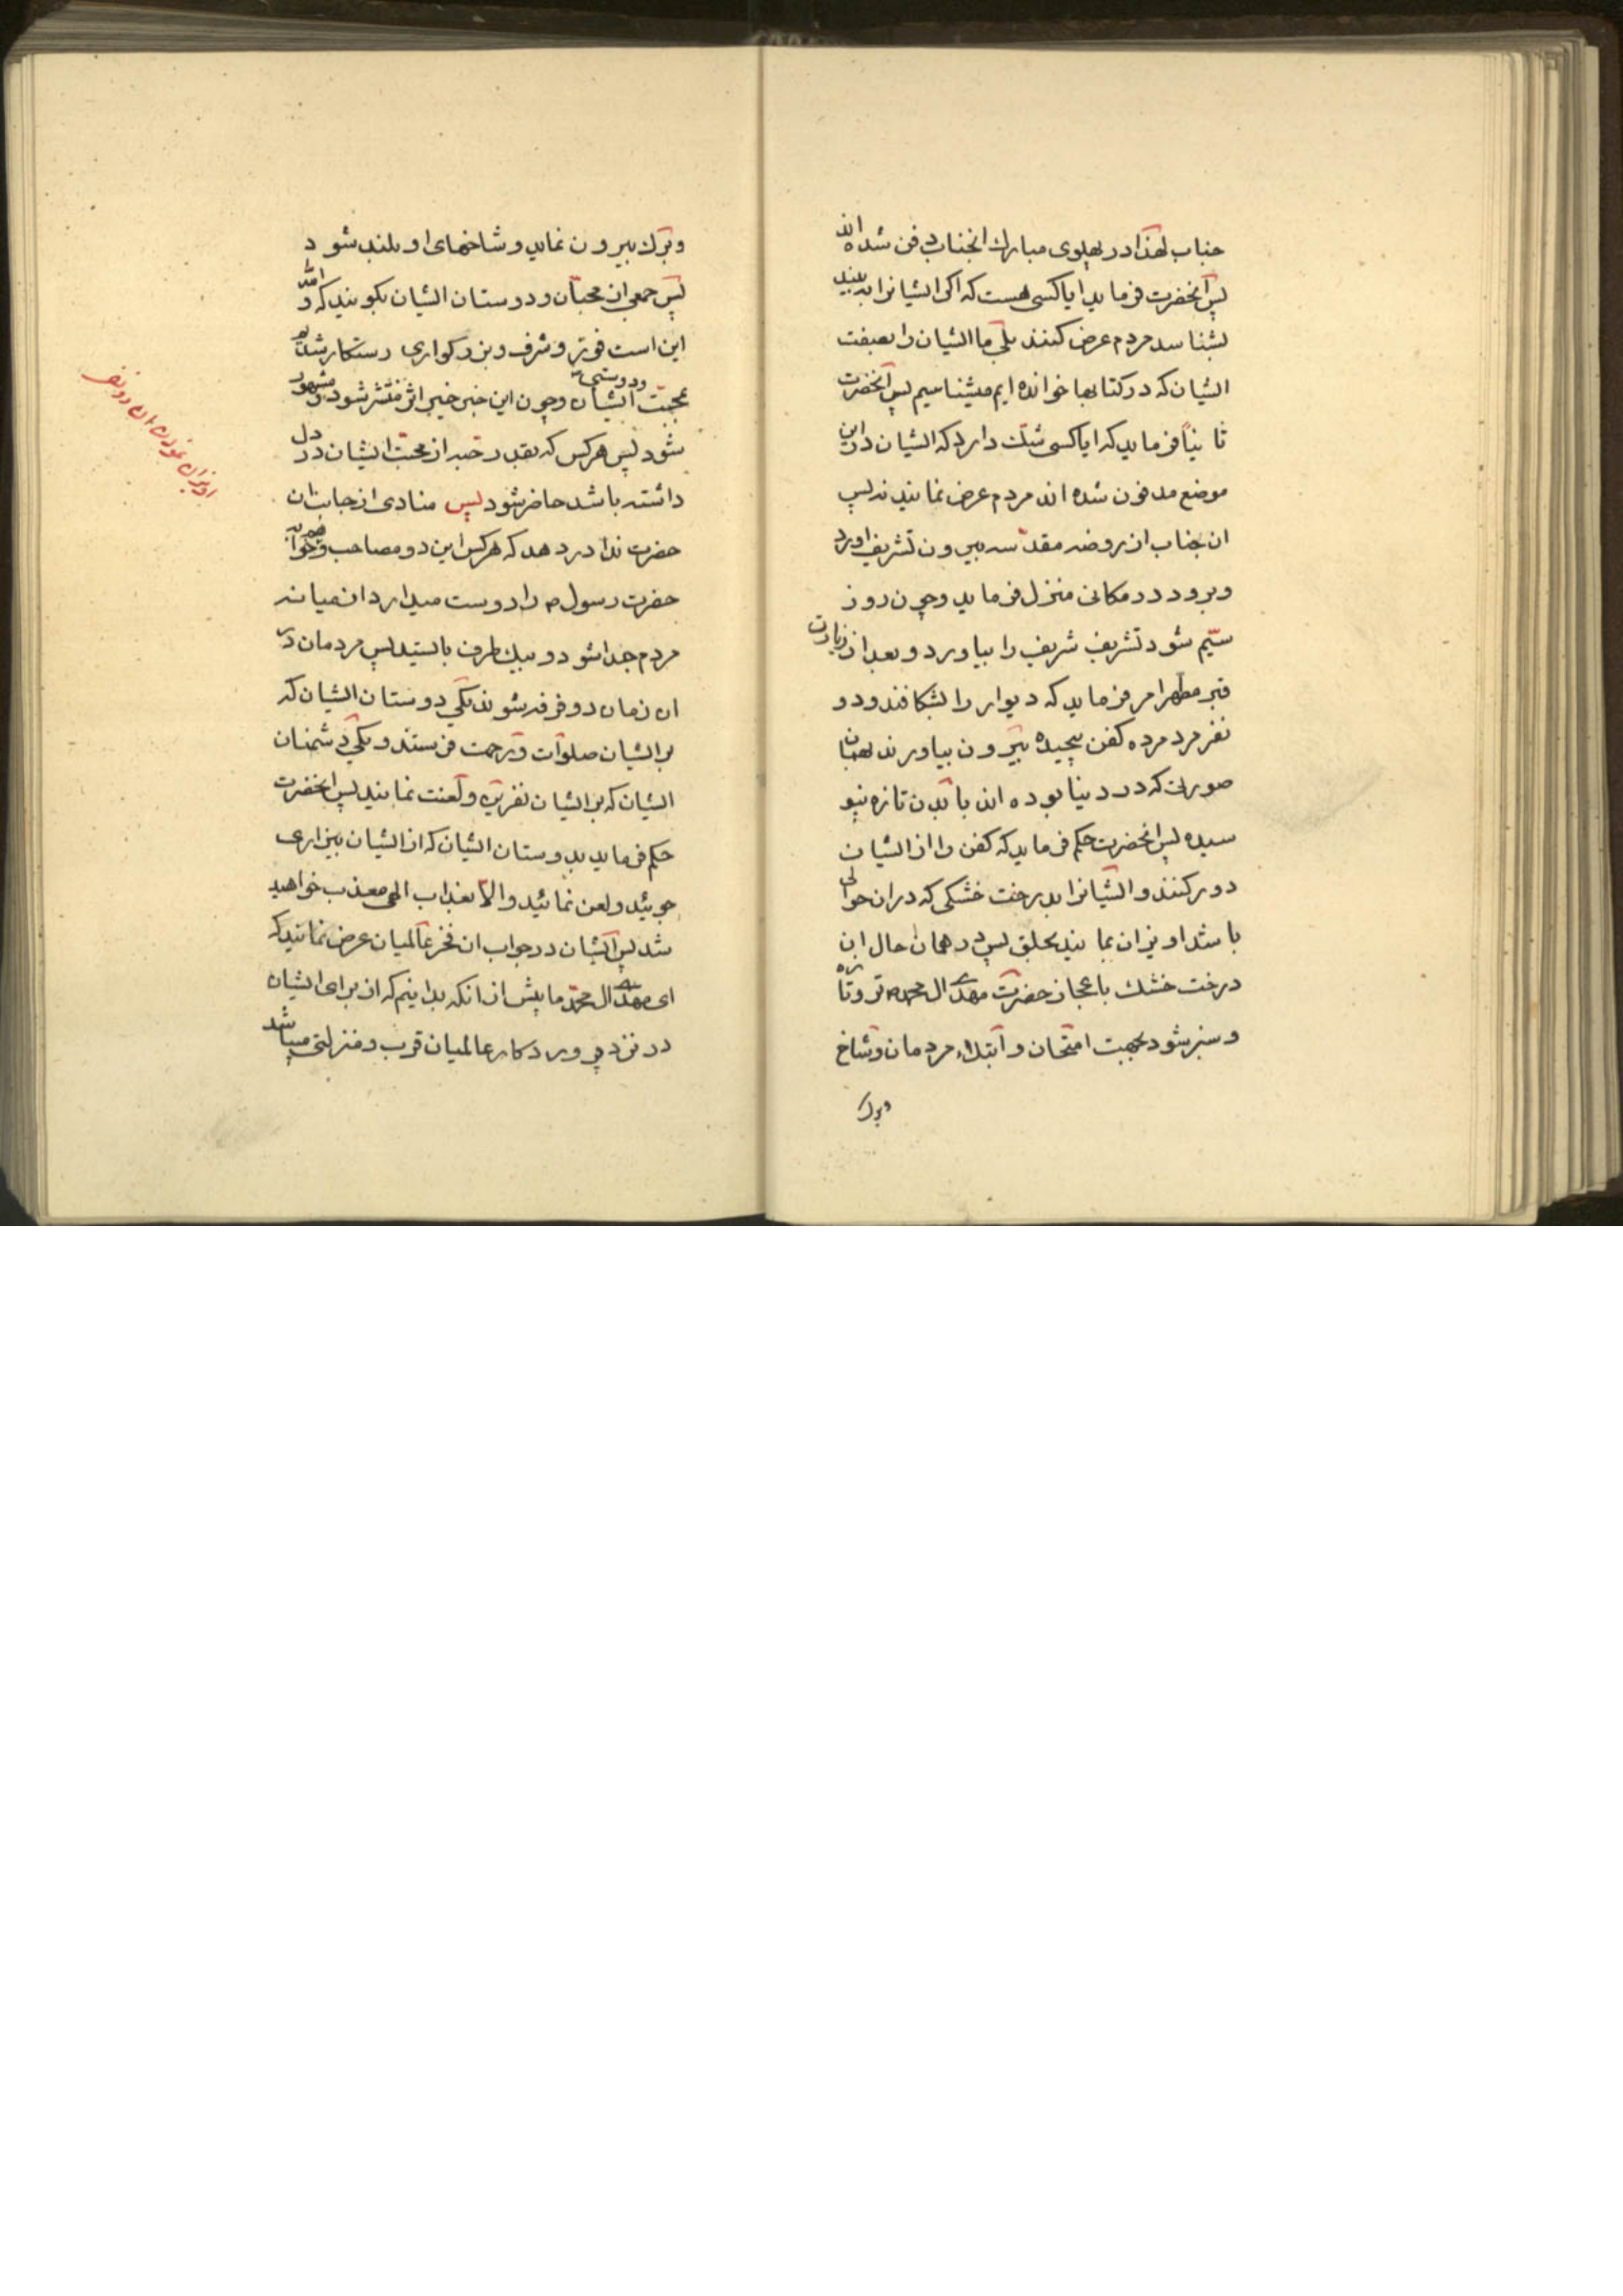 جناب لهذا در پهلوی مبارك انجناب دفن شده اند
پس انحضرت فرماید ایا کسی هست که اکر ایشانرا به بیند
بشناسد مردم عرض کنند بلی ما ایشان را بصفت
ایشان که در کتابها خوانده ایم میشناسیم پس انحضرت
ثانیاً فرماید که ایا کسی شک دارد که ایشان در این
موضع مدفون شده اند مردم عرض نمایند نه پس
ان جناب از روضه مقدّسه بیرون تشریف اورد
وبرود در مکانی منزل فرماید وچون روز
سیّم شود تشریف شریف را بیاورد و بعد از زیارت
قبر مطهر امر فرماید که دیوار را بشکافند و دو
نفر مرد مرده کفن پیچیده بیرون بیاورند بهمان
صورت که در دنیا بوده اند با بدن تازه نپو
سیده پس انحضرت حکم فرماید که کفن را از ایشان
دور کنند و ایشانرا بدرخت خشکی که در ان حوالی
باشد اویزان نمایند بحلق پس در همان حال ان
درخت خشك باعجاز حضرت مهدی ال محمد تر و تازه
و سبز شود بجهت امتحان و ابتلاء مردمان وشاخ
وبرك
وبرك بیرون نماید و شاخهای او بلند شود
پس جمعی از محبّان و دوستان ایشان بکویند که والله
این است فوز و شرف و بزرکواری رستکار شدیم
بمحبّت ودوستی ایشان وچون این خبر خیر اثر منتشر شود ومشهور
شود پس هر کس که بقدر حبه از محبّت ایشان در دل
داشته باشد حاضر شود پس منادی از جانب ان
حضرت ندا در دهد که هر کس این دو مصاحب وهمخوابه
حضرت رسول ص را دوست میدارد از میانه
مردم جدا شود و بیك طرف بایستد پس مردمان در
ان زمان دو فرقه شوند یکی دوستان ایشان که
بر ایشان صلوات و رحمت فرستند و یکی دشمنان
ایشان که بر ایشان نفرین و لعنت نمایند پس انحضرت
حکم فرماید بدوستان ایشان که از ایشان بیزاری
جوئید ولعن نمائید والا بعذاب الهی معذب خواهید
شد پس ایشان در جواب ان فخر عالمیان عرض نمایند که
ای مهدی ال محمّد ما پیش از انکه بدانیم که از برای ایشان
در نزد پروردکار عالمیان قرب و منزلتی میباشد
اویزان نمودن ان دو نفر